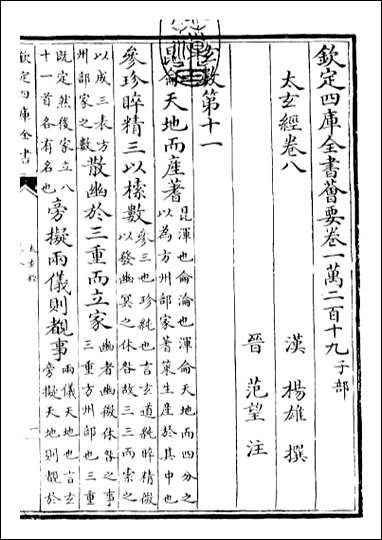 欽定四庫全書薈要卷一萬二百十九 子部
太玄經卷八
漢 楊雄 撰
晉 范望 注
玄數第十一
昆侖天地而產蓍 昆渾也侖淪也渾淪天地而四分之
以為方州部家蓍策生產於其中也
參珍睟精三以數 參三也珍純也言玄道純睟精微
以發幽冥之休咎故三三而索之
以成三表方
州部家之數 散幽於三重而立家 幽者幽微休咎之事
三重方州部也三重
既定然後家立八
十一首各有名也 旁擬兩儀則覩事 兩儀天地也言玄
旁擬天地則覩於
欽定四庫全書
太玄經
一